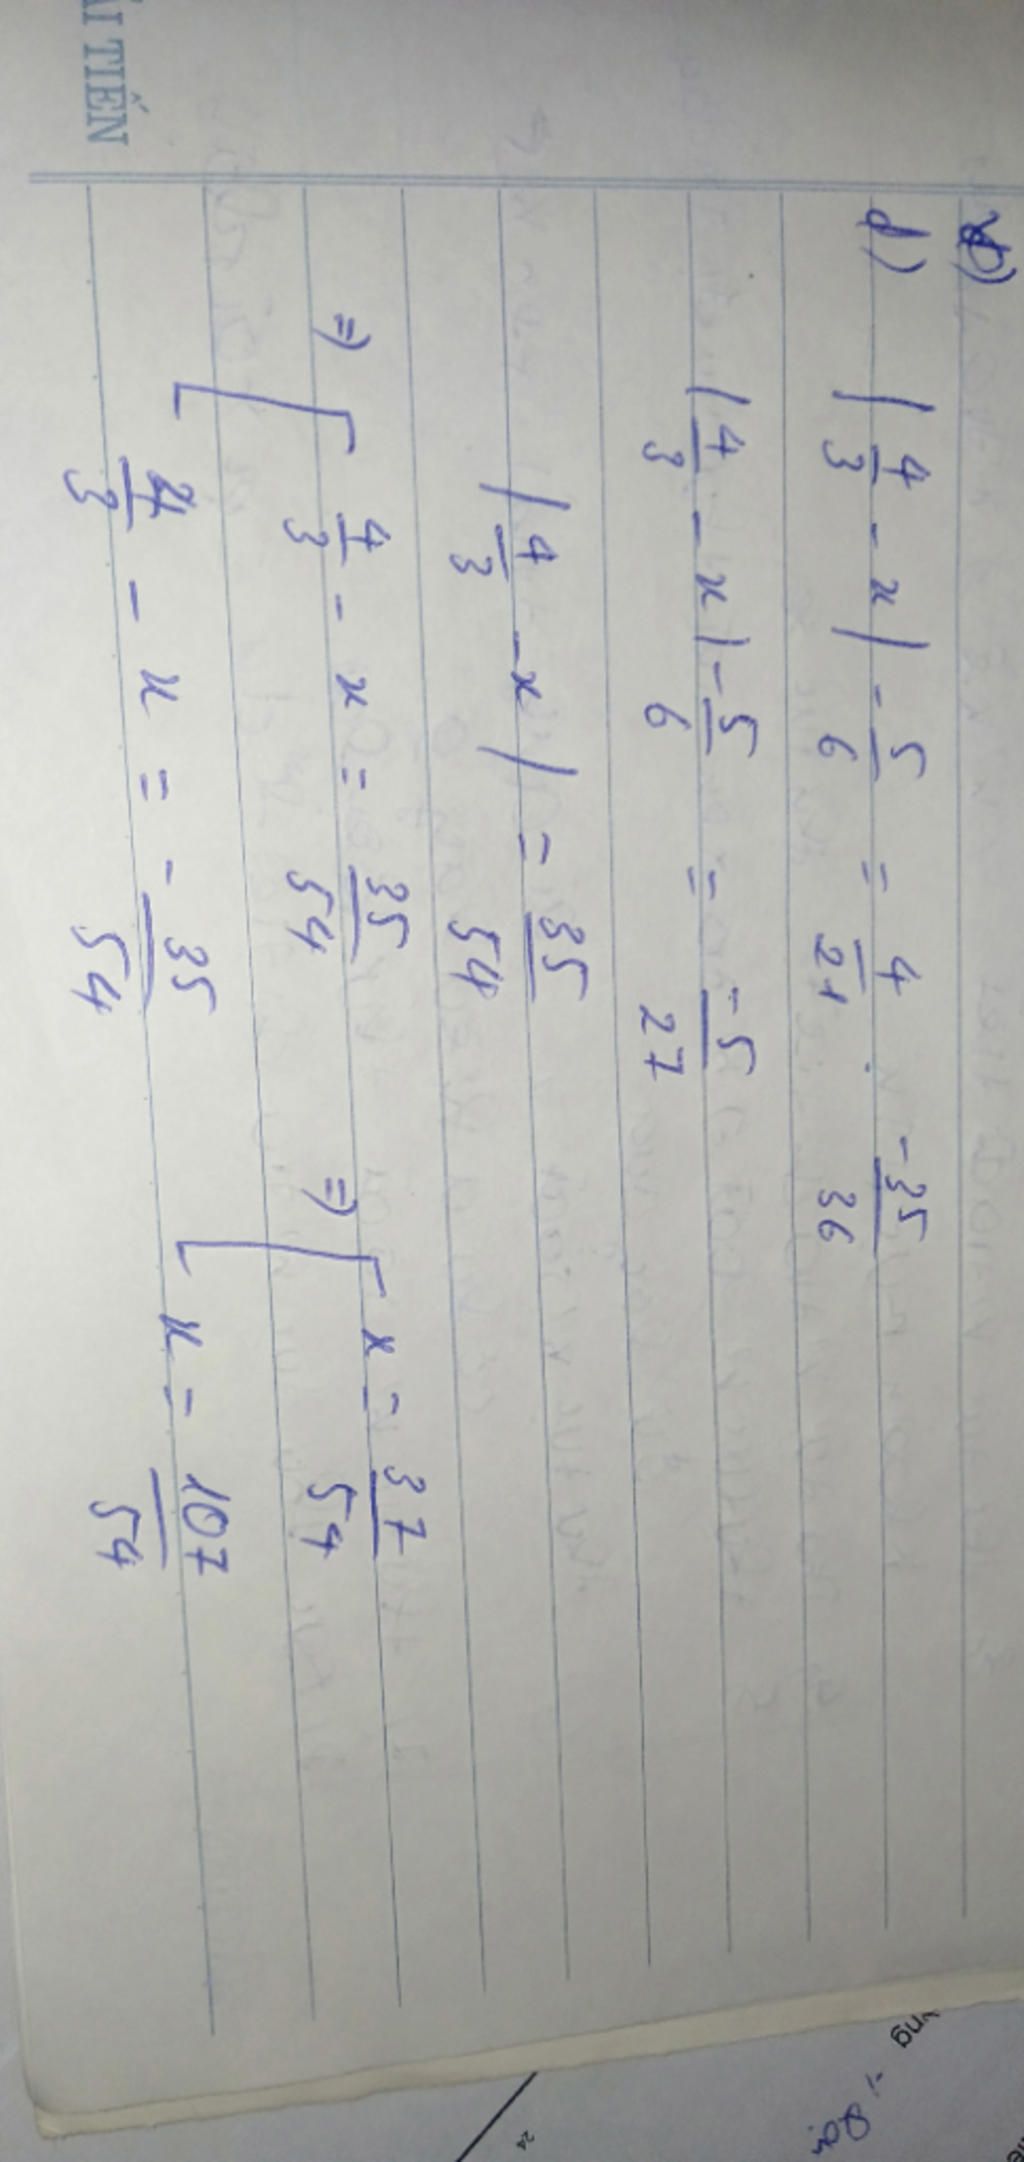 ẢI TIẾN
d)
|4/3 - x| - 5/6 = 4/21 . -35/36
|4/3 - x| - 5/6 = -5/27
|4/3 - x| = 35/54
=> [ 4/3 - x = 35/54 => [ x = 37/54
4/3 - x = -35/54 x = 107/54
24